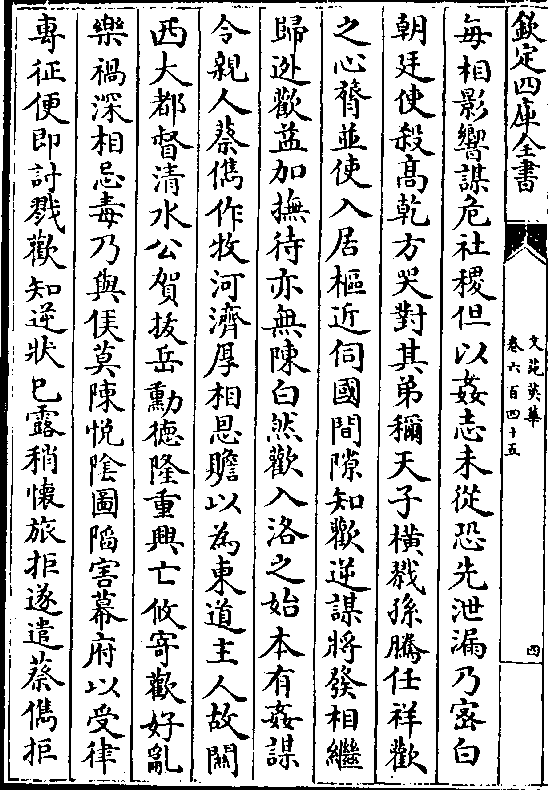 欽定四庫全書
文苑英華
卷六百四十五
四
每相影響謀危社稷但以姦志未從恐先泄漏乃密白
朝廷使殺髙乾方哭對其弟稱天子橫戮孫騰任祥歡
之心膂並使入居樞近伺國間隙知歡逆謀將發相繼
歸逃歡益加撫待亦無陳白然歡入洛之始本有姦謀
令親人蔡儁作牧河濟厚相恩贍以為東道主人故關
西大都督清水公賀拔岳勳徳隆重興亡攸寄歡好亂
樂禍深相忌毒乃與侯莫陳悅隂圖陷害幕府以受律
專征便即討戮歡知逆狀已露稍懷旅拒遂遣蔡儁拒